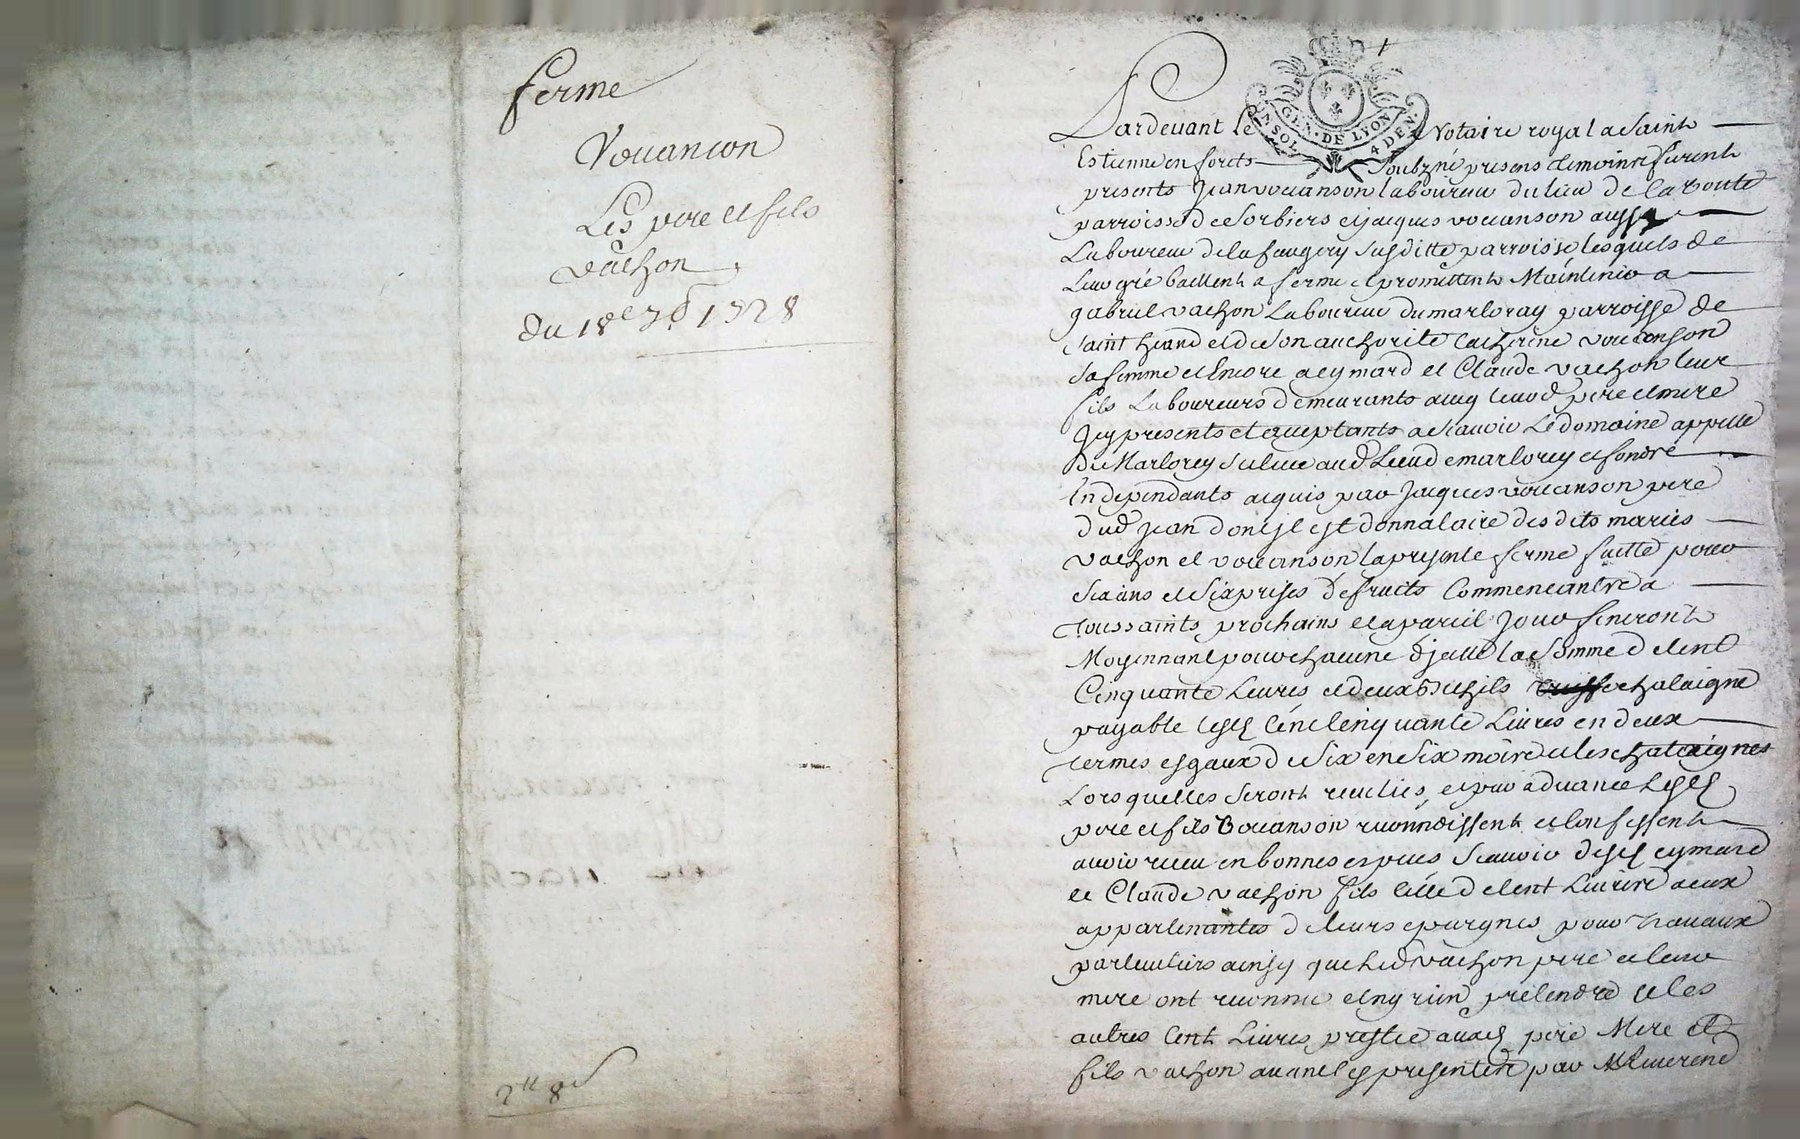 ferme
Vouancon
Les pere et fils
vachon
du 18e 7d 1728
2tt 8d
GEN. DE LYON
UN SOL 4 DEN
Pardevant le Notaire royal a Saint
Estienne en forets Soubzné presens temoins furent
presents Jean vouanson laboureur du lieu de la voute
parroisse de Sorbiers et jacques vouanson aussy
Laboureur de la faugery susditte parroisse lesquels de
Leur gré baillent a ferme et promettent Maintenir a
gabriel vachon Laboureur du marloray parroisse de
saint heand et de son authorite catherine vouanson
sa femme et Encore a eymard et Claude vachon leur
fils Laboureurs demeurants avec leurd pere et mere
Icy presents et acceptants a scavoir Le domaine appellé
du Marlorey scitue aud Lieu de marlorey et fondz
En dependants acquis par Jacques vouanson pere
dud jean dont jl est donnataire des dits mariés
vachon et vouanson la presente ferme faitte pour
six ans et six prises de fruits Commencantz a
toussaints prochains et a pareil Jour finiront
Moyennant pour chacune d'jcelle la somme de Cent
Cinquante Livres et deux chalaigne
payable lesd Cent Cinquante Livres en deux
termes esgaux de six en six mois et les chataignes
Lors quelles seront reculies, et par advance Lesd
pere et fils Vouanson reconnoissent et confessent
avoir receu en bonnes especes scavoir desd eymard
et Claude vachon fils celle de Cent Livres a eux
appartenantes de leurs epargnes pour travaux
particuliers ainsy que led vachon pere et leur
mere ont reconnu et ny rien pretendre et les
autres Cent Livres prestée auxd pere Mere et
fils vachon avant ces presentes par Reverend